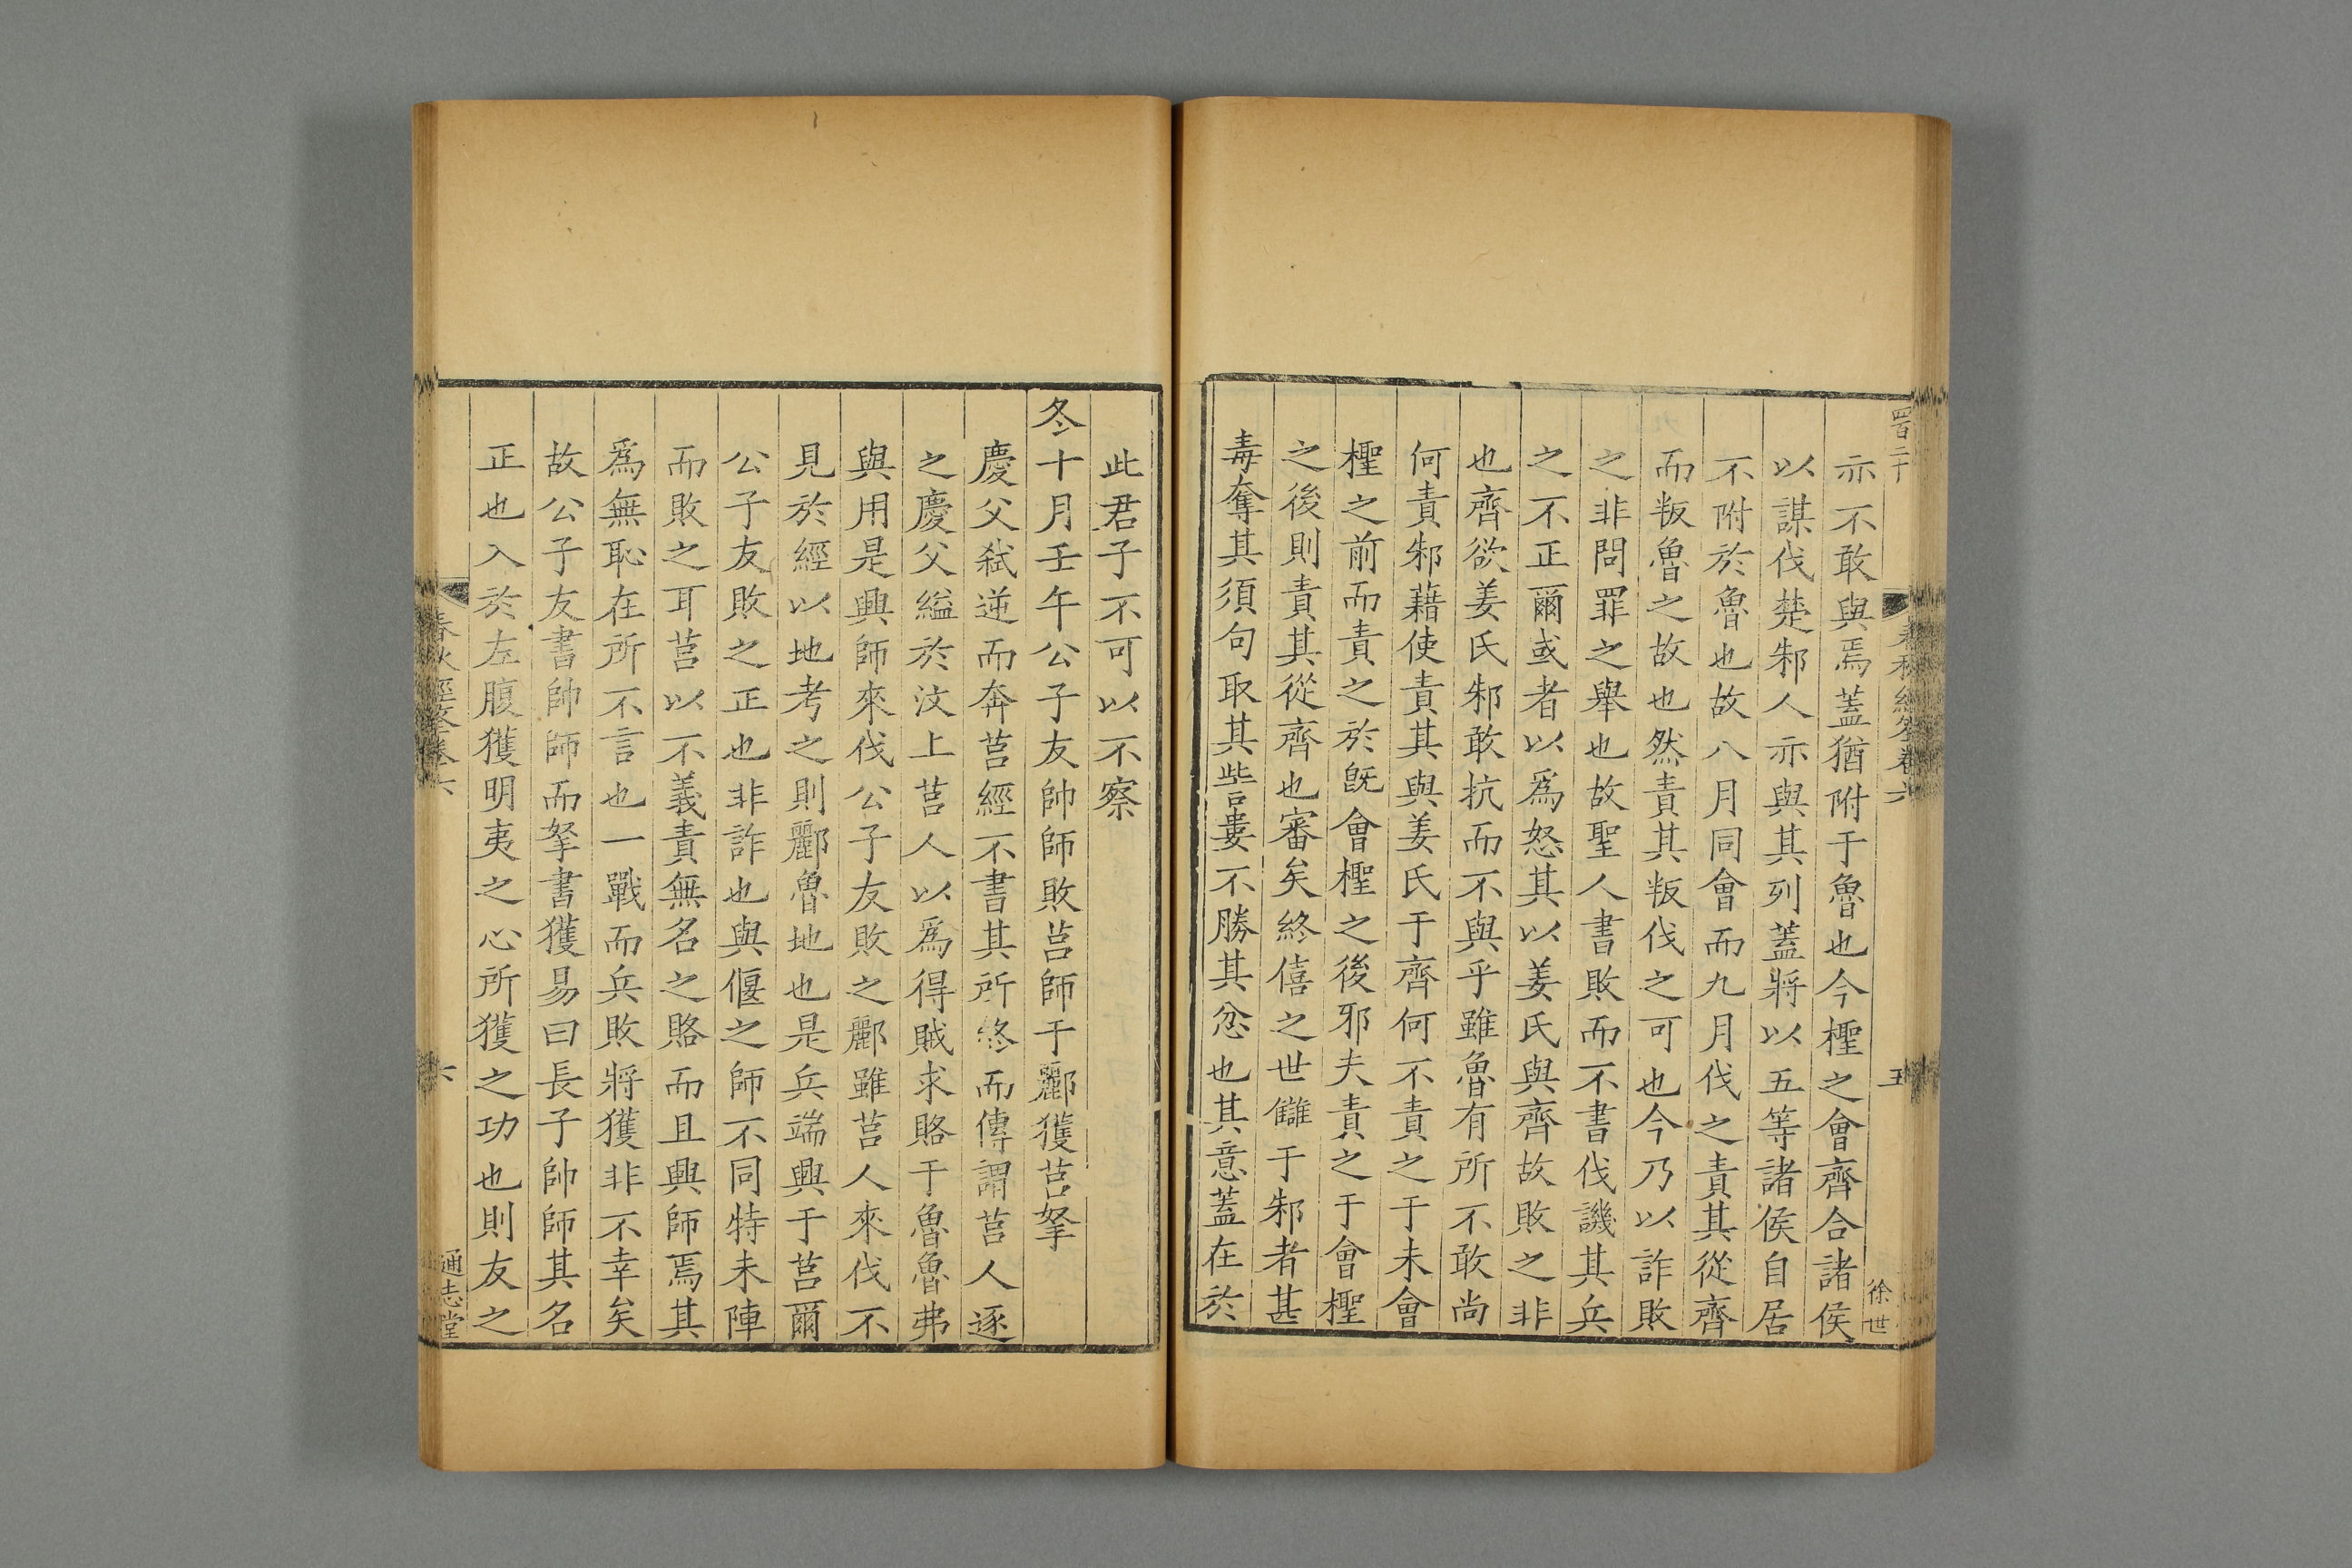 四百二十
春秋經筌卷六
五
徐世
亦不敢與焉蓋猶附于魯也今檉之會齊合諸侯
以謀伐楚邾人亦與其列蓋將以五等諸侯自居
不附於魯也故八月同會而九月伐之責其從齊
而叛魯之故也然責其叛伐之可也今乃以詐敗
之非問罪之舉也故聖人書敗而不書伐譏其兵
之不正爾或者以爲怒其以姜氏與齊故敗之非
也齊欲姜氏邾敢抗而不與乎雖魯有所不敢尚
何責邾藉使責其與姜氏于齊何不責之于未會
檉之前而責之於旣會檉之後邪夫責之于會檉
之後則責其從齊也審矣終僖之世讎于邾者甚
毒奪其須句取其訾婁不勝其忿也其意蓋在於
此君子不可以不察
冬十月壬午公子友帥師敗莒師于酈獲莒挐
慶父弒逆而奔莒經不書其所終而傳謂莒人逐
之慶父縊於汶上莒人以爲得賊求賂于魯魯弗
與用是興師來伐公子友敗之酈雖莒人來伐不
見於經以地考之則酈魯地也是兵端興于莒爾
公子友敗之正也非詐也與偃之師不同特未陣
而敗之耳莒以不義責無名之賂而且興師焉其
爲無恥在所不言也一戰而兵敗將獲非不幸矣
故公子友書帥師而挐書獲易曰長子帥師其名
正也入於左腹獲明夷之心所獲之功也則友之
春秋經筌卷六
六
通志堂